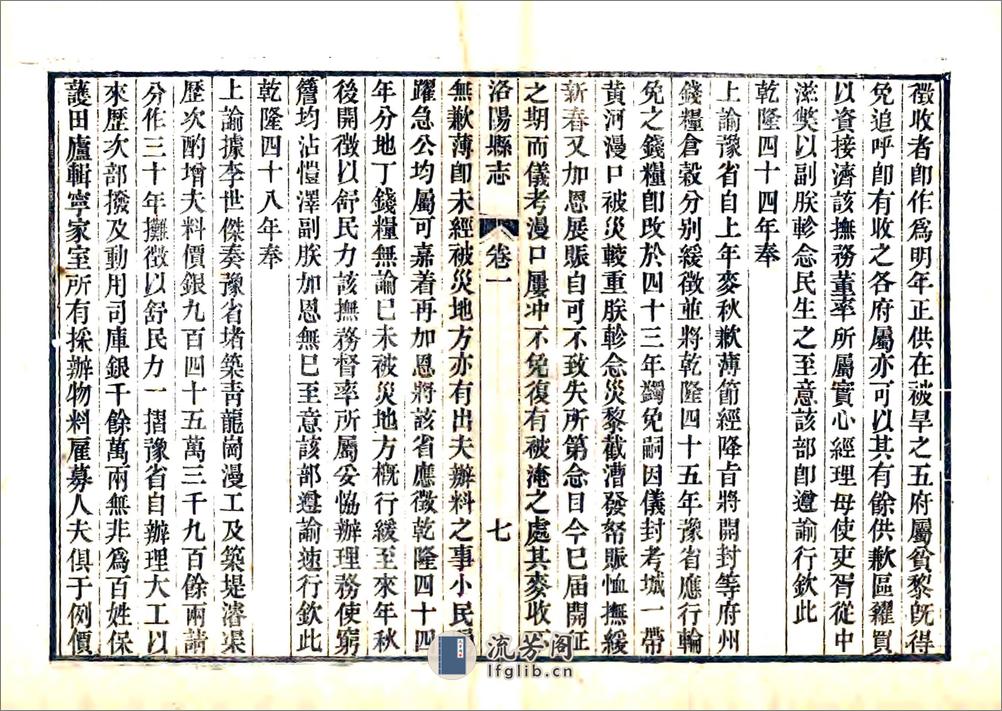 徵收者卽作爲明年正供在被旱之五府屬貧黎旣得
免追呼卽有收之各府屬亦可以其有餘供歉區糴買
以資接濟該撫務董率所屬實心經理毋使吏胥從中
滋獘以副朕軫念民生之至意該部卽遵諭行欽此
乾隆四十四年奉
上諭豫省自上年麥秋歉薄節經降旨將開封等府州
錢糧倉穀分別緩徵並將乾隆四十五年豫省應行輪
免之錢糧卽改於四十三年蠲免嗣因儀封考城一帶
黃河漫口被災較重朕軫念災黎截漕發帑賑恤撫綏
新春又加恩展賑自可不致失所第念目今已届開征
之期而儀考漫口屢冲不免復有被淹之處其麥收
洛陽縣志 卷一 七
無歉薄卽未經被災地方亦有出夫辦料之事小民
躍急公均屬可嘉着再加恩將該省應徵乾隆四十四
年分地丁錢糧無論已未被災地方槪行緩至來年秋
後開徵以舒民力該撫務督率所屬妥恊辦理務使窮
簷均沾愷澤副朕加恩無已至意該部遵諭速行欽此
乾隆四十八年奉
上諭據李世傑奏豫省堵築靑龍崗漫工及築堤濬渠
歷次酌增夫料價銀九百四十五萬三千九百餘兩請
分作三十年攤徵以舒民力一摺豫省自辦理大工以
來歷次部撥及動用司庫銀千餘萬兩無非爲百姓保
護田廬輯寧家室所有採辦物料雇募人夫俱于例價
流芳阁
lfglib.cn